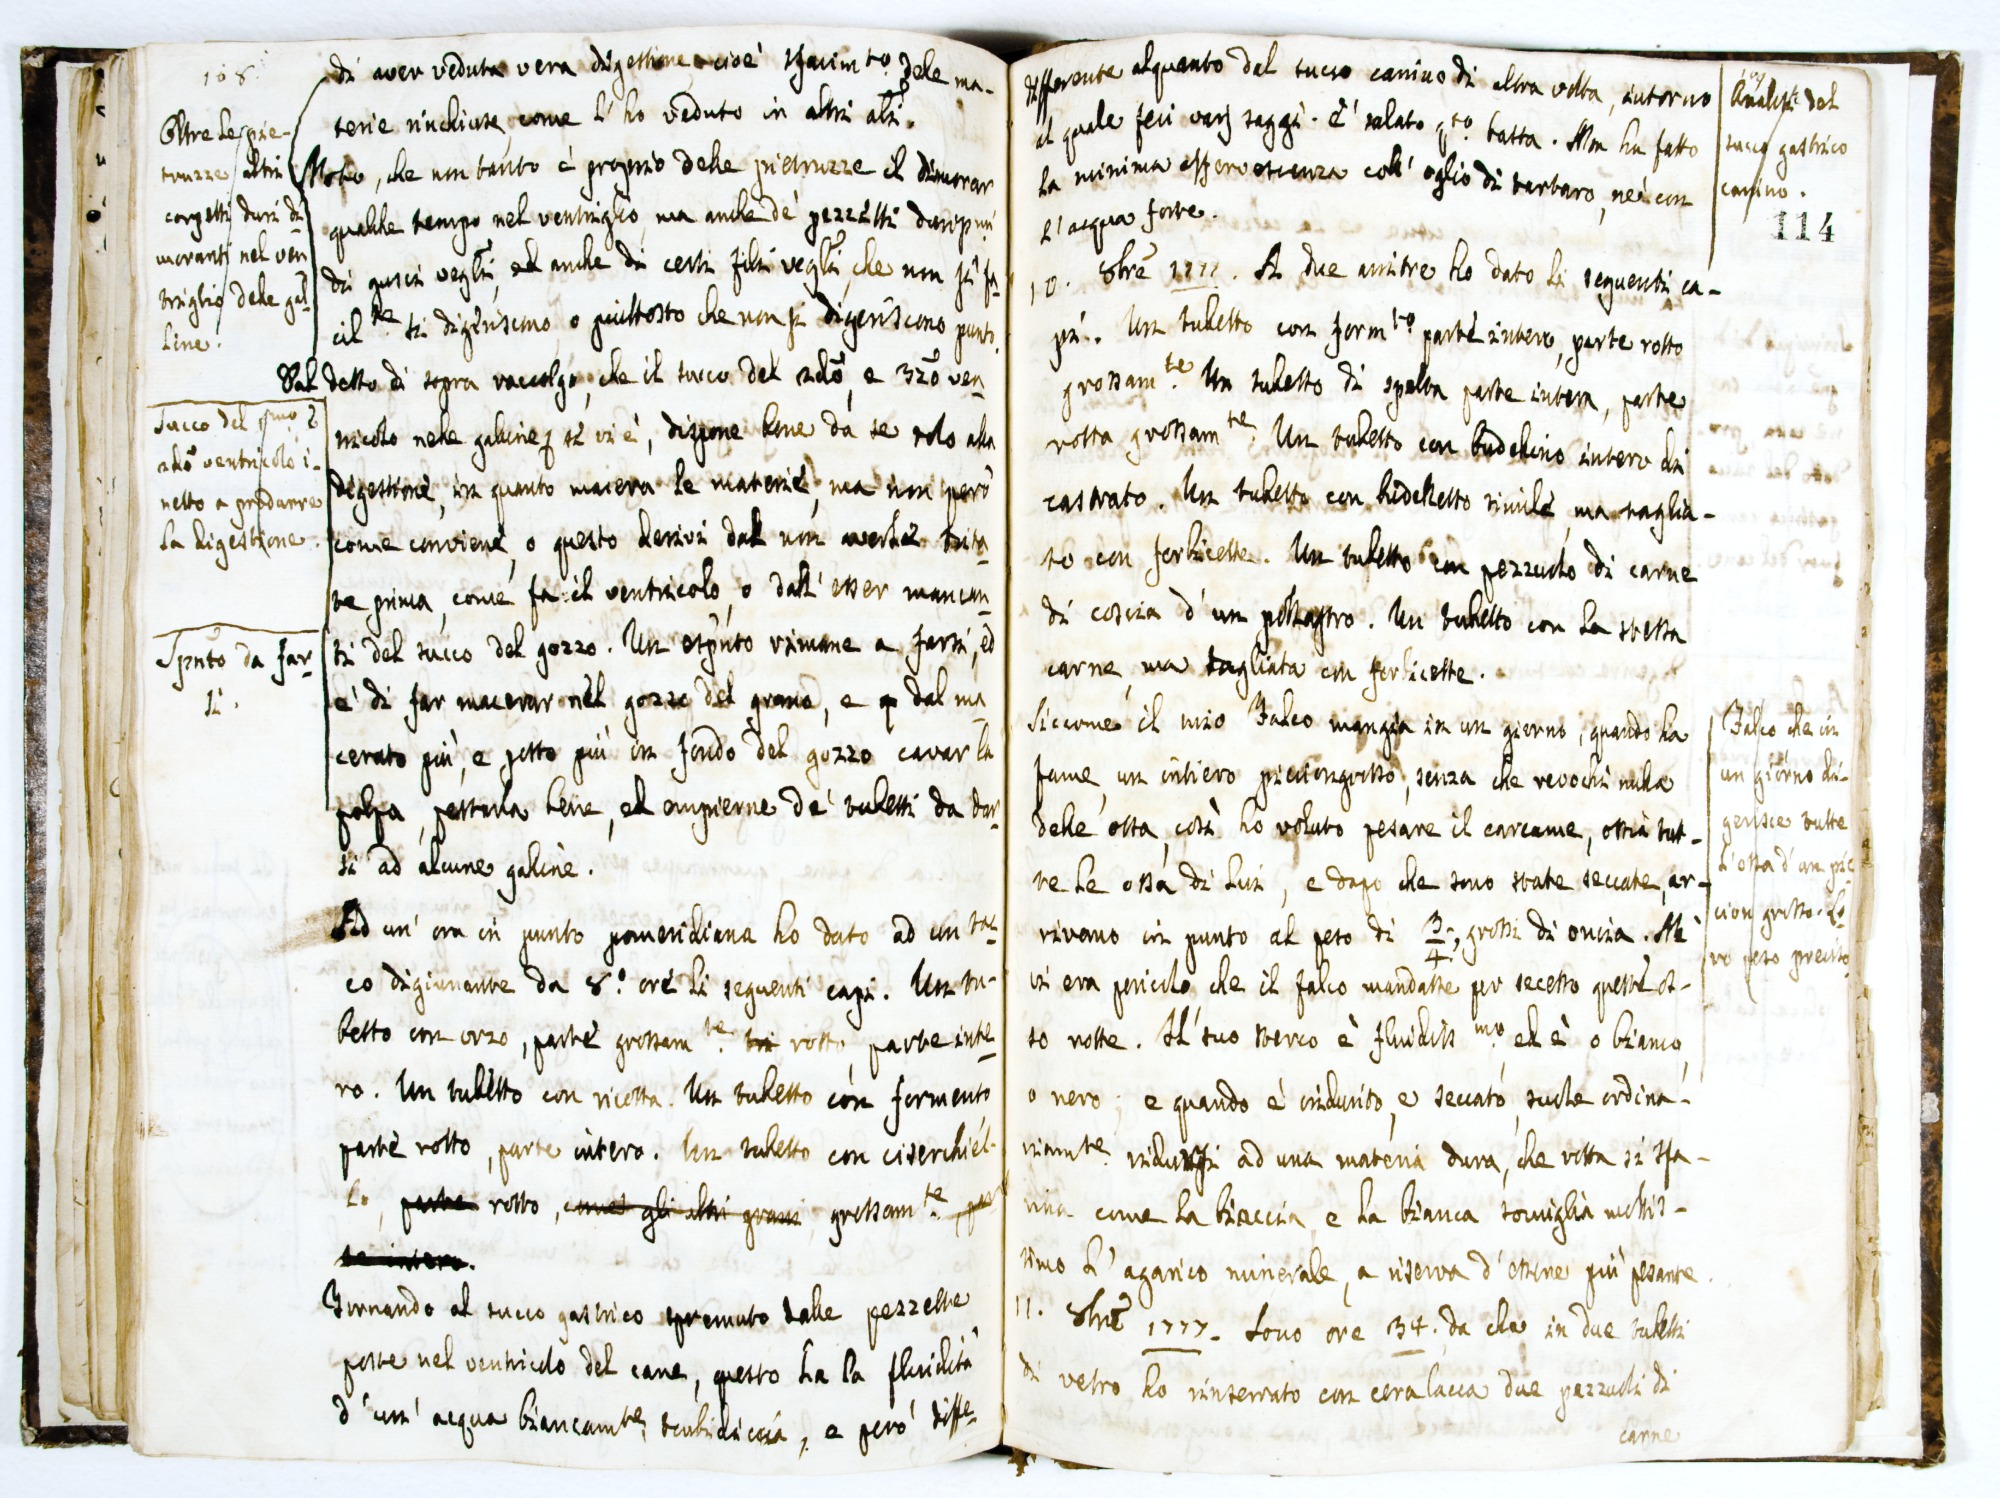 108.
di aver veduta vera digestione, cioè sfacim.to delle ma-
terie rinchiuse, come l'ho veduto in altri
Noto, che non tanto è proprio delle pietruzze il dimorar
qualche tempo nel ventriglio, ma anche de' pezzetti
di gusci veglj, ed anche di certi fili veglj, che non si fa-
cil.te si digeriscono, o piuttosto che non si digeriscono punto.
Oltre le pie-
truzze altri
corpetti duri di-
moranti nel ven
triglio delle gal-
line.
Dal detto di sopra raccolgo, che il succo del 2do, e 3zo ven-
tricolo nelle galline, se vi è, dispone bene da se solo alla
digestione, in quanto macera le materie, ma non però
come conviene, o questo derivi dal non averle trita-
te prima, come fa il ventricolo, o dall'esser mancan-
ti del succo del gozzo. Un espnto rimane a farsi, ed
è di far macerar nel gozzo del grano, e dal ma-
cerato più, e posto più in fondo del gozzo cavar la
polpa, pestarla bene, ed empierne de' tubetti da dar-
si ad alcune galline.
Succo del pmo e
2do ventricolo i-
netto a produrre
la digestione.
Spnto da far-
si.
Ad un' ora in punto pomeridiana ho dato ad un tac-
co digiunante da 8.o ore li seguenti capi. Un tu-
betto con orzo, parte grossam.te rotto, parte inte-
ro. Un tubetto con ricotta. Un tubetto con formento
parte rotto, parte intero. Un tubetto con ciserchiel-
lo, parte rotto, come gli altri grani grossam.te, par
te intero.
Tornando al succo gastrico spremuto dalle pezzette
poste nel ventricolo del cane, questo ha la fluidità
d'un' acqua biancam.te torbidiccia, e però diffe-
differente alquanto dal succo canino di altra volta, intorno
al quale feci varj saggi. È salato qto basta. Non ha fatto
la minima effervescenza coll' oglio di tartaro, nè con
l'acqua forte.
Analisi del
succo gastrico
canino.
114
10. 8bre 1777. A due anitre ho dato li seguenti ca-
pi. Un tubetto con form.to parte intero, parte rotto
grossam.te Un tubetto di spelta parte intera, parte
rotta grossam.te Un tubetto con budellino intero di
castrato. Un tubetto con budelletto simile, ma taglia-
to con forbicette. Un tubetto con pezzuolo di carne
di coscia d'un pollastro. Un tubetto con la stessa
carne, ma tagliata con forbicette.
Siccome il mio Falco mangia in un giorno, quando ha
fame, un intiero picciongrosso, senza che revochi nulla
delle ossa, così ho voluto pesare il carcame, ossia tut-
te le ossa di lui, e dopo che sono state seccate, ar-
rivano in punto al peso di 3/4 grossi di oncia. Nè
vi era pericolo che il falco mandasse per secesso queste os-
so rotte. Il suo sterco è fluidiss.mo, ed è o bianco,
o nero; e quando è indurito, e seccato, suole ordina-
riamte ridursi ad una materia dura, che rotta si sfa-
rina come la biaccia, e la bianca somiglia moltis-
simo l'agarico minerale, a riserva d'essere più pesante.
Falco che in
un giorno di-
gerisce tutte
l'ossa d'un pic-
cion grosso. Lo-
ro peso preciso.
11. 8bre 1777. Sono ore 34. da che in due tubetti
di vetro ho rinserrato con cera lacca due pezzuoli di
carne